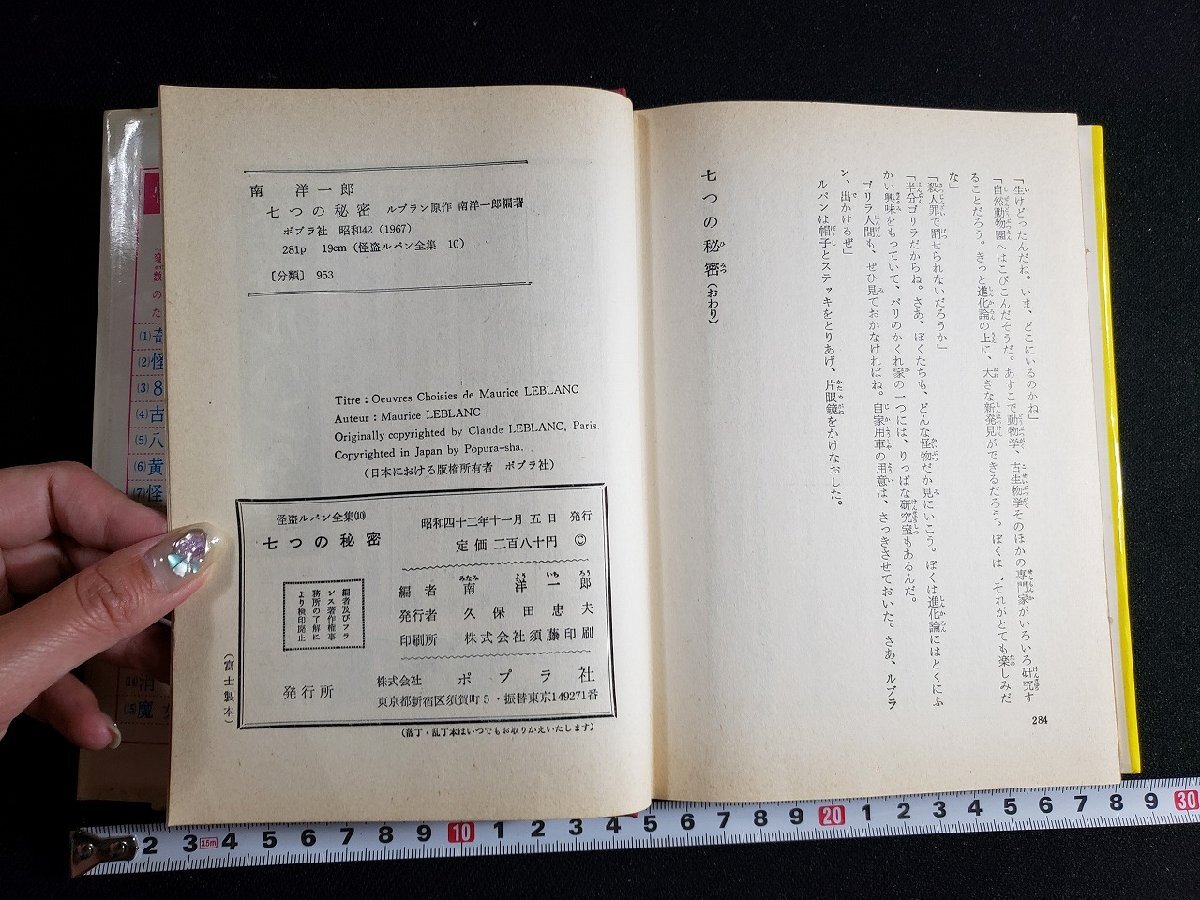 「生けどったんだね。いま、どこにいるのかね」
「自然動物園へはこびこんだそうだ。あすこで動物学、古生物学そのほかの専門家がいろいろ研究す
ることだろう。きっと進化論の上に、大きな新発見ができるだろう。ぼくは、それがとても楽しみだ
な」
「殺人罪で罰せられないだろうか」
「半分ゴリラだからね。さあ、ぼくたちも、どんな怪物だか見にいこう。ぼくは進化論にはとくにふ
かい興味をもっていて、パリのかくれ家の一つには、りっぱな研究室もあるんだ。
ゴリラ人間も、ぜひ見ておかなければね。自家用車の用意は、さっきさせておいた。さあ、ルブラ
ン、出かけるぜ」
ルパンは帽子とステッキをとりあげ、片眼鏡をかけなおした。
七つの秘密(おわり)
284
南 洋一郎
七つの秘密 ルブラン原作 南洋一郎編著
ポプラ社 昭和42 (1967)
281p 19cm (怪盗ルパン全集 10)
〔分類〕 953
Titre : Oeuvres Choisies de Maurice LEBLANC
Auteur : Maurice LEBLANC
Originally copyrighted by Claude LEBLANC, Paris.
Copyrighted in Japan by Popura-sha.
(日本における版権所有者 ポプラ社)
怪盗ルパン全集(10)
七つの秘密
昭和四十二年十一月五日 発行
定価 二百八十円 ©
編者及びフラ
ンス著作権事
務所の了解に
より検印廃止
編者 南洋一郎
発行者 久保田忠夫
印刷所 株式会社須藤印刷
発行所 株式会社 ポプラ社
東京都新宿区須賀町5・振替東京149271番
(落丁・乱丁本はいつでもお取りかえいたします)
(富士製本)
(1)
(2)怪
(3)8
(4)古
(5)八
(6)黄
(7)怪
(15)魔
2 3 15m 4 5 6 7 8 9 10 1 2 3 4 5 6 7 8 9 20 1 2 3 4 5 6 7 8 9 30